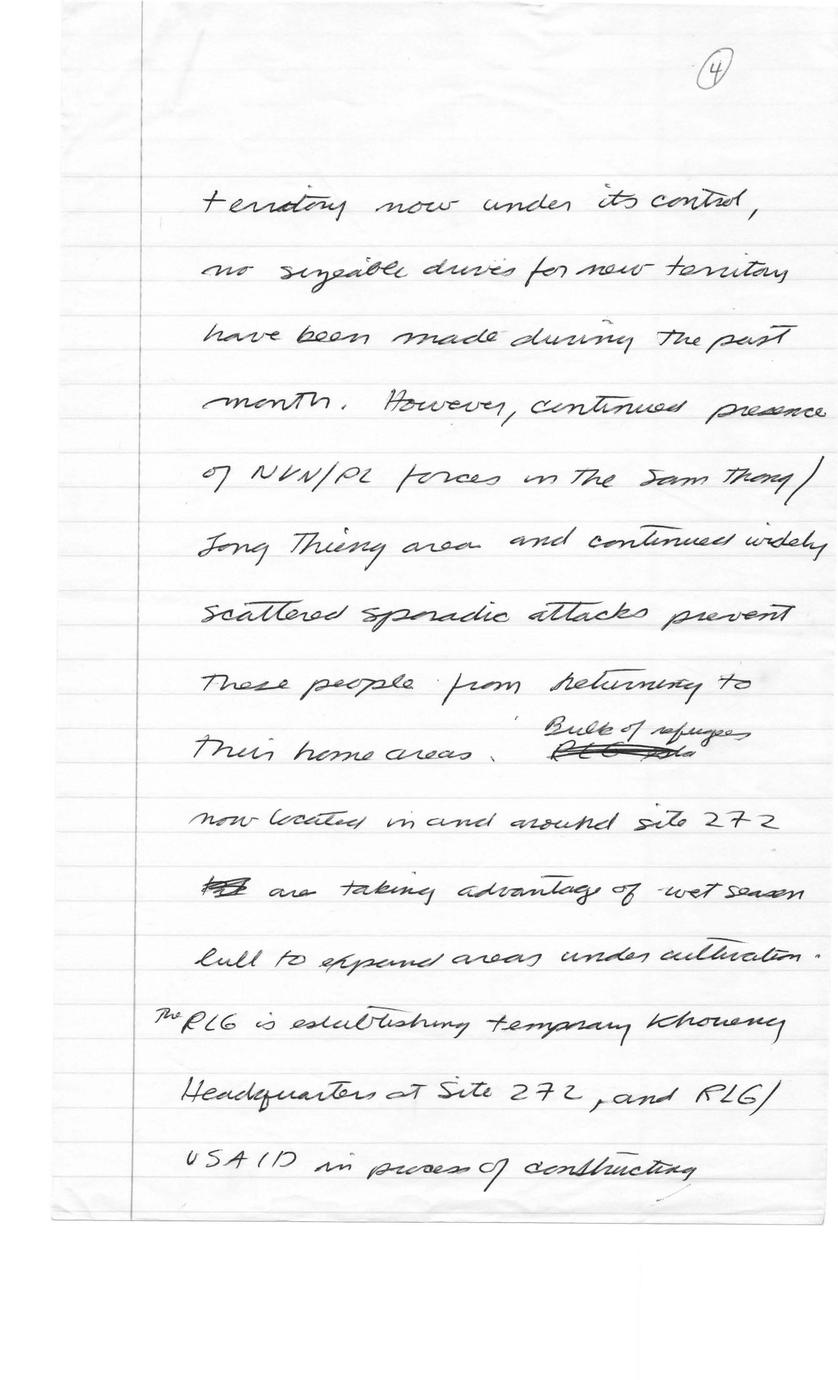 4
territory now under its control,
no sizeable drives for new territory
have been made during the past
month. However, continued presence
of NVN/PL forces in the Sam Thong/
Long Thieng area and continued widely
scattered sporadic attacks prevent
these people from returning to
their home areas. Bulk of refugees
now located in and around site 272
are taking advantage of wet season
lull to expand areas under cultivation.
The RLG is establishing temporary Khoueng
Headquarters at Site 272, and RLG/
USAID in process of constructing